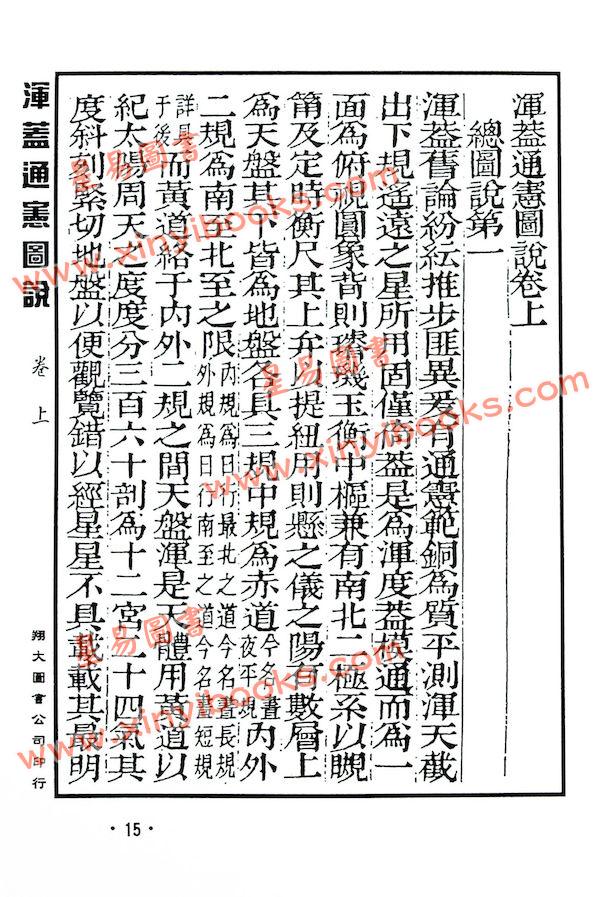 渾蓋通憲圖說卷上
總圖說第一
渾蓋舊論紛紜推步匪異爰有通憲範銅為質平測渾天截
出下規遙遠之星所用固僅倚蓋是為渾度蓋模通而為一
面為俯視圓象背則璿璣玉衡中樞兼有南北二極系以瞡
筩及定時衡尺其上弁以提紐用則懸之儀之陽有數層上
為天盤其下皆為地盤各具三規中規為赤道今名晝夜平規內外
二規為南至北至之限內規為日行最北之道今名晝長規外規為日行南至之道今名晝短規
詳具于後而黃道絡于內外二規之間天盤渾是天體用黃道以
紀太陽周天之度度分三百六十剖為十二宮二十四氣其
度斜刻緊切地盤以便觀覽錯以經星星不具載載其最明
渾蓋通憲圖說
卷上
翔大圖書公司印行
·15·
星易圖書
www.xinyibooks.com
星易圖書
www.xinyibooks.com
星易圖書
www.xinyibooks.com